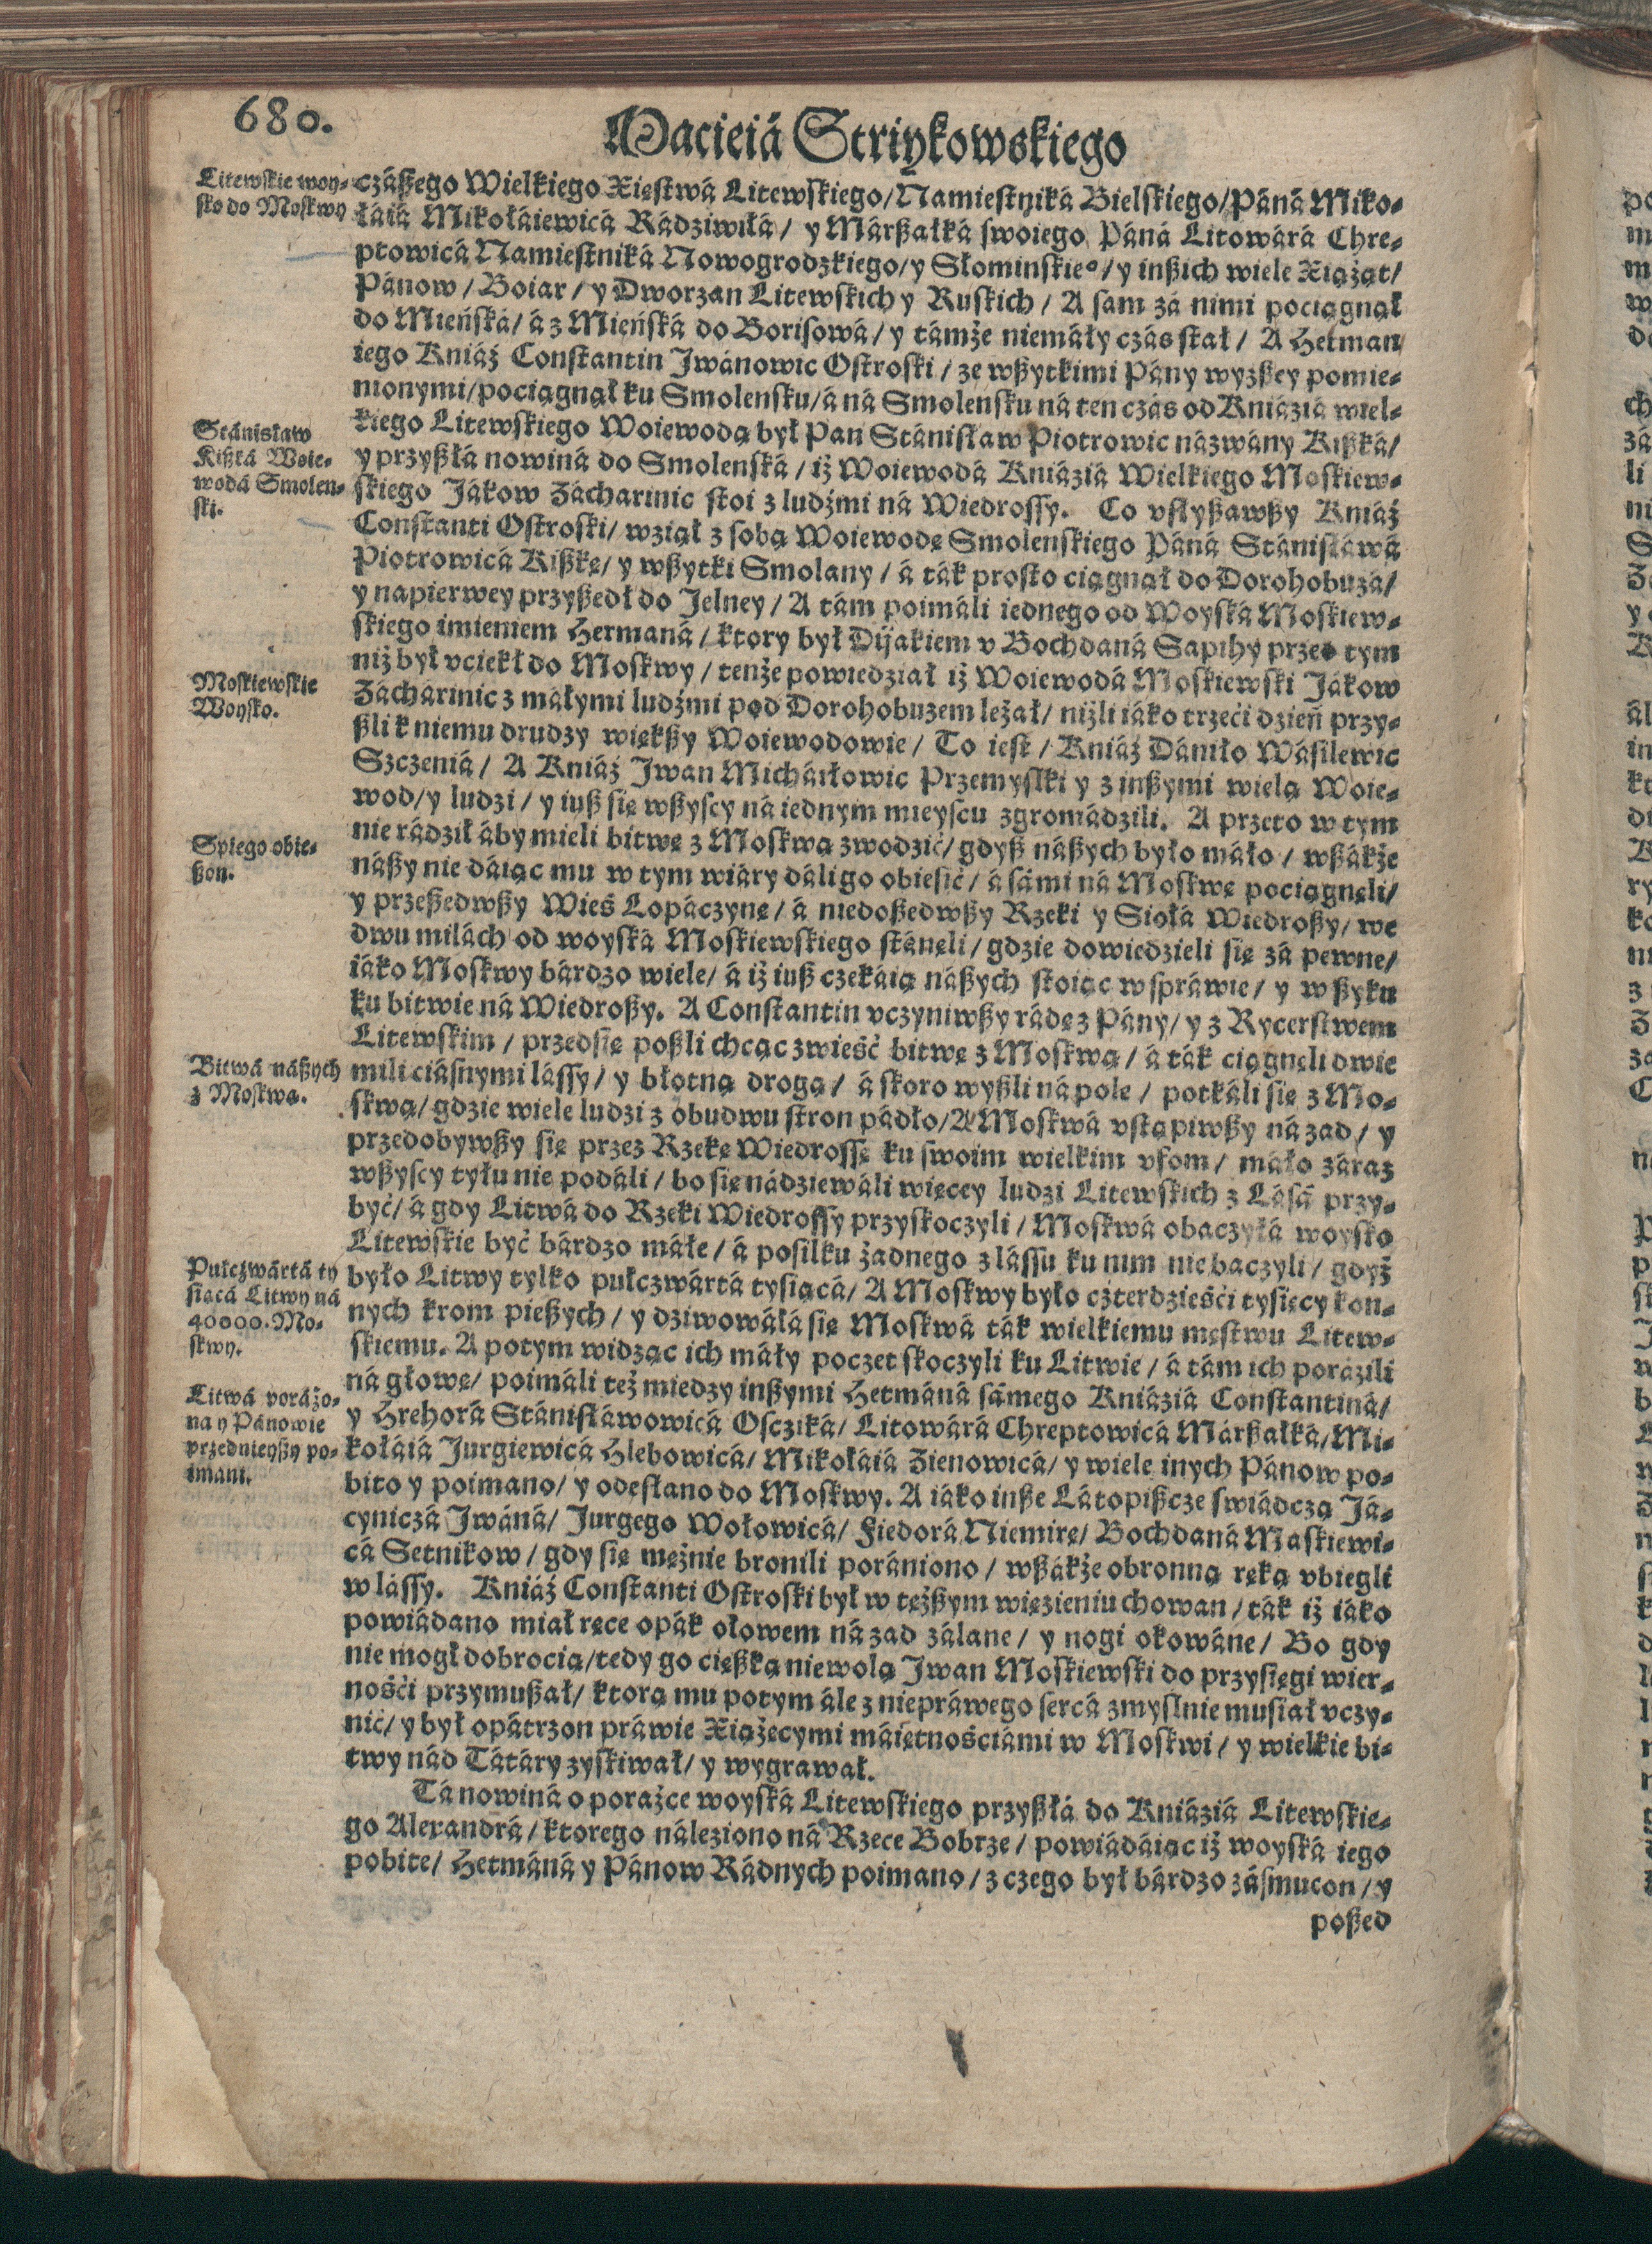 680.
Macieiá Striykowskiego
Litewskie woy⸗
sko do Moskwy
czászego Wielkiego Xięstwá Litewskiego/ Namiestniká Bielskiego/ Páná Miko⸗
łáiá Mikołáiewicá Rádziwiłá/ y Márßałká swoiego Páná Litowárá Chre⸗
ptowicá Namiestniká Nowogrodzkiego/ y Słominskieº/ y inßich wiele Xiążąt/
Pánow/ Boiar/ y Dworzan Litewskich y Ruskich/ A sam zá nimi pociągnął
do Mieńská/ á z Mieńská do Borisowá/ y támże niemáły czás stał/ A Hetman
iego Kniáź Constantin Jwánowic Ostroski/ ze wßytkimi Pány wyzßey pomie⸗
nionymi/ pociągnął ku Smolensku/ á ná Smolensku ná ten czás od Kniáziá wiel⸗
kiego Litewskiego Woiewodą był Pan Stánisław Piotrowic názwány Kißká/
Stánisław
Kißká Woie⸗
wodá Smolen⸗
ski.
y przyßłá nowiná do Smolenská/ iż Woiewodá Kniáziá Wielkiego Moskiew⸗
skiego Jákow Zácharinic stoi z ludźmi ná Wiedrossy. Co vslyßawßy Kniáź
Constanti Ostroski/ wziął z sobą Woiewodę Smolenskiego Páná Stánisławá
Piotrowicá Kißkę/ y wßytki Smolany/ á ták prosto ciągnął do Dorohobuzá/
y napierwey przyßedł do Jelney/ A tám poimáli iednego od Woyská Moskiew⸗
skiego imieniem Hermaná/ ktory był Dijakiem v Bochdaná Sapihy przed tym
niż był vciekł do Moskwy/ tenże powiedział iż Woiewodá Moskiewski Jákow
Moskiewskie
Woysko.
Zácharinic z máłymi ludźmi pod Dorohobuzem leżał/ niżli iáko trzeći dzień przy⸗
ßli k niemu drudzy więkßy Woiewodowie/ To iest/ Kniáź Dániło Wásilewic
Szczeniá/ A Kniáź Jwan Micháiłowic Przemyslki y z inßymi wielą Woie⸗
wod/ y ludzi/ y iuß się wßyscy ná iednym mieyscu zgromádzili. A przeto w tym
nie rádził áby mieli bitwę z Moskwą zwodzić/ gdyß náßych było máło/ wßákże
Spiego obie⸗
ßon.
náßy nie dáiąc mu w tym wiáry dáli go obiesić/ á sámi ná Moskwę pociągnęli/
y przeßedwßy Wieś Lopáczynę/ á niedoßedwßy Rzeki y Siołá Wiedroßy/ we
dwu milách od woyská Moskiewskiego stánęli/ gdzie dowiedzieli się zá pewne/
iáko Moskwy bárdzo wiele/ á iż iuß czekáią náßych stoiąc w spráwie/ y w ßyku
ku bitwie ná Wiedroßy. A Constantin vczyniwßy rádę z Pány/ y z Rycerstwem
Litewskim/ przedsię poßli chcąc zwieść bitwę z Moskwą/ á ták ciągnęli dwie
Bitwá náßych
z Moskwą.
mili ciásnymi lássy/ y błotną drogą/ á skoro wyßli ná pole/ potkáli się z Mo⸗
skwą/ gdzie wiele ludzi z obudwu stron pádło/ A Moskwá vstąpiwßy ná zad/ y
przedobywßy się przez Rzekę Wiedrossę ku swoim wielkim vfom/ máło záraz
wßyscy tyłu nie podáli/ bo się nádziewáli więcey ludzi Litewskich z Lásá przy⸗
być/ á gdy Litwá do Rzeki Wiedrossy przyskoczyli/ Moskwá obaczyłá woysko
Litewskie być bárdzo máłe/ á posiłku żadnego z lássu ku nim nie baczyli/ gdyż
Pułczwártá ty
siącá Litwy ná
40000. Mo⸗
skwy.
było Litwy tylko pułczwártá tysiącá/ A Moskwy było czterdzieści tysięcy kon⸗
nych krom pießych/ y dziwowáłá się Moskwá ták wielkiemu męstwu Litew⸗
skiemu. A potym widząc ich máły poczet skoczyli ku Litwie/ á tám ich porázili
ná głowę/ poimáli też miedzy inßymi Hetmáná sámego Kniáziá Constantiná/
Litwá porážo⸗
na y Pánowie
przednieyßy po⸗
imani.
y Hrehorá Stánisławowicá Osciká/ Litowárá Chreptowicá Márßałká/ Mi⸗
kołáiá Jurgiewicá Hlebowicá/ Mikołáiá Zienowicá/ y wiele inych Pánow po⸗
bito y poimano/ y odesłano do Moskwy. A iáko inße Látopißcze swiádczą Já⸗
cyniczá Jwáná/ Jurgego Wołowicá/ Fiedorá Niemirę/ Bochdaná Maskiewi⸗
cá Setnikow/ gdy się mężnie bronili porániono/ wßákże obronną ręką vbiegli
w lássy. Kniáź Constanti Ostroski był w tężßym więzieniu chowan/ ták iż iáko
powiádano miał ręce opák ołowem ná zad zálane/ y nogi okowáne/ Bo gdy
nie mogł dobrocią/ tedy go cięßką niewolą Jwan Moskiewski do przysięgi wier⸗
ności przymußał/ ktorą mu potym ále z niepráwego sercá zmyslnie musiał vczy⸗
nić/ y był opátrzon práwie Xiążęcymi máiętnościámi w Moskwi/ y wielkie bi⸗
twy nád Tátáry zyskiwał/ y wygrawał.
Tá nowiná o porażce woyská Litewskiego przyßłá do Kniáziá Litewskie⸗
go Alexandrá/ ktorego náleziono ná Rzece Bobrze/ powiádáiąc iż woyská iego
pobite/ Hetmáná y Pánow Rádnych poimano/ z czego był bárdzo zásmucon/ y
poßed